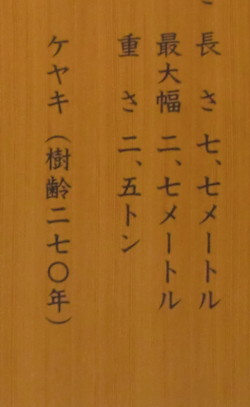 長さ 七、七メートル
最大幅 二、七メートル
重さ 二、五トン
ケヤキ（樹齢二七〇年）